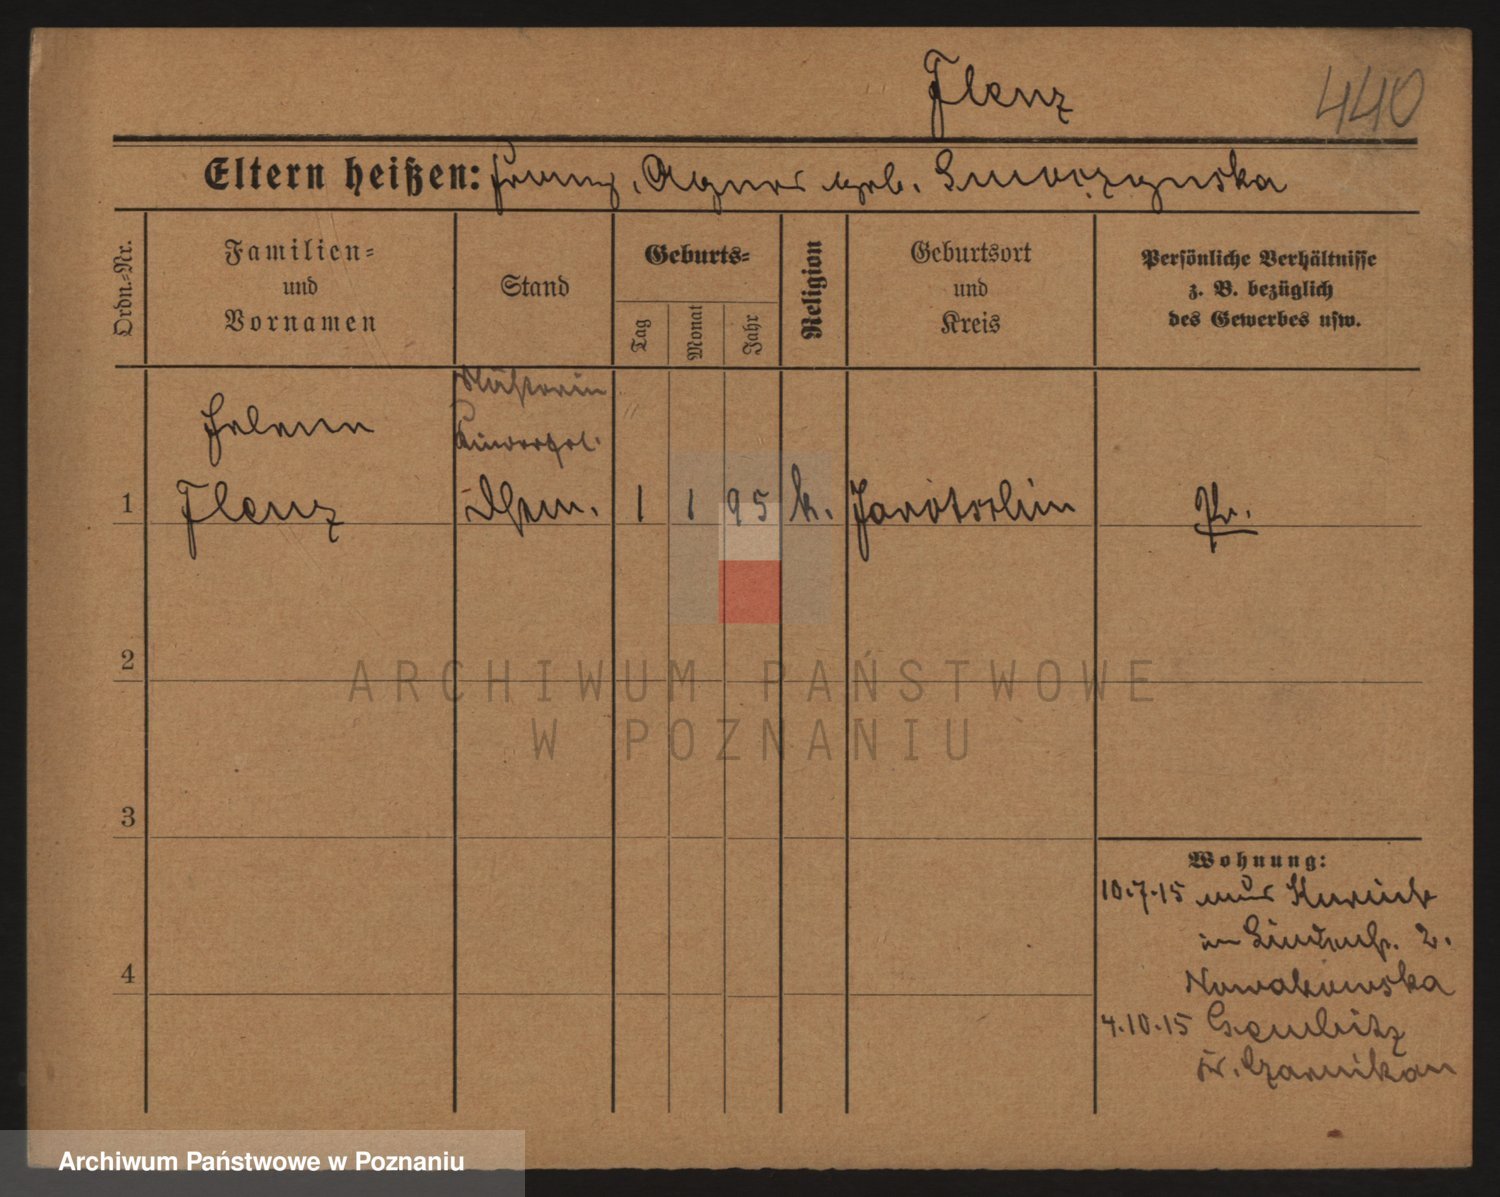 Flenz
440
Eltern heißen: Franz, Agnes geb. Smorzynska
Ordn.-Nr.
Familien-
und
Vornamen
Stand
Geburts-
Tag
Monat
Jahr
Religion
Geburtsort
und
Kreis
Persönliche Verhältnisse
z. B. bezüglich
des Gewerbes usw.
Nähterin
Helene
1 Flenz 1 1 95 k. Jarotschin Pr.
2
ARCHIWUM PAŃSTWOWE
W POZNANIU
3
Wohnung:
10.7.15 aus Kurnik
in Lindenstr. 2.
4 Nowakowska
4.10.15 Gembitz
Kr. Czarnikau
Archiwum Państwowe w Poznaniu